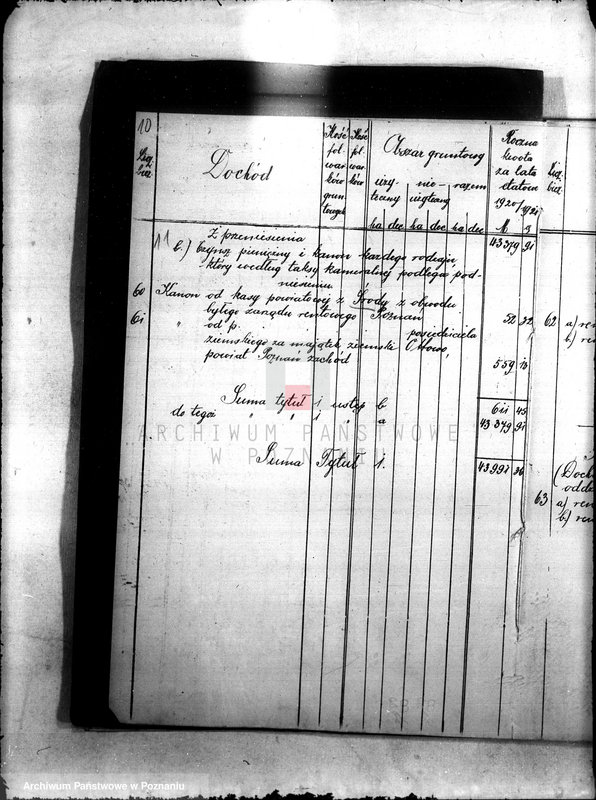 10
Licz. biez.
Dochód
Ilość fol- war- ków grun- towych
Ilość fol- war- ków
Obszar gruntowy
uży- teczny
nie- użyteczny
razem
ha dec ha dec ha dec
Roczna kwota za lata statowe 1920/1921
M. d
Z przeniesienia 43379 91
11 b.) Czynsz pieniężny i kanon każdego rodzaju,
który według taksy kameralnej podlega pod-
niesieniu
60 Kanon od kasy powiatowej z Środy z obwodu
byłego zarządu rentowego Poznań 52 32
61 " od p. posiedziciela
ziemskiego za majątek ziemski Ottowo,
powiat Poznań zachod 559 13
Suma tytuł 1 ustęp b 611 45
do tego " " 1 " a 43379 91
Suma Tytuł 1. 43991 36
Licz. biez.
62 a) ren
b) ren
(Doch
odd
63 a) ren
b) ren
ARCHIWUM PAŃSTWOWE
W POZNANIU
Archiwum Państwowe w Poznaniu